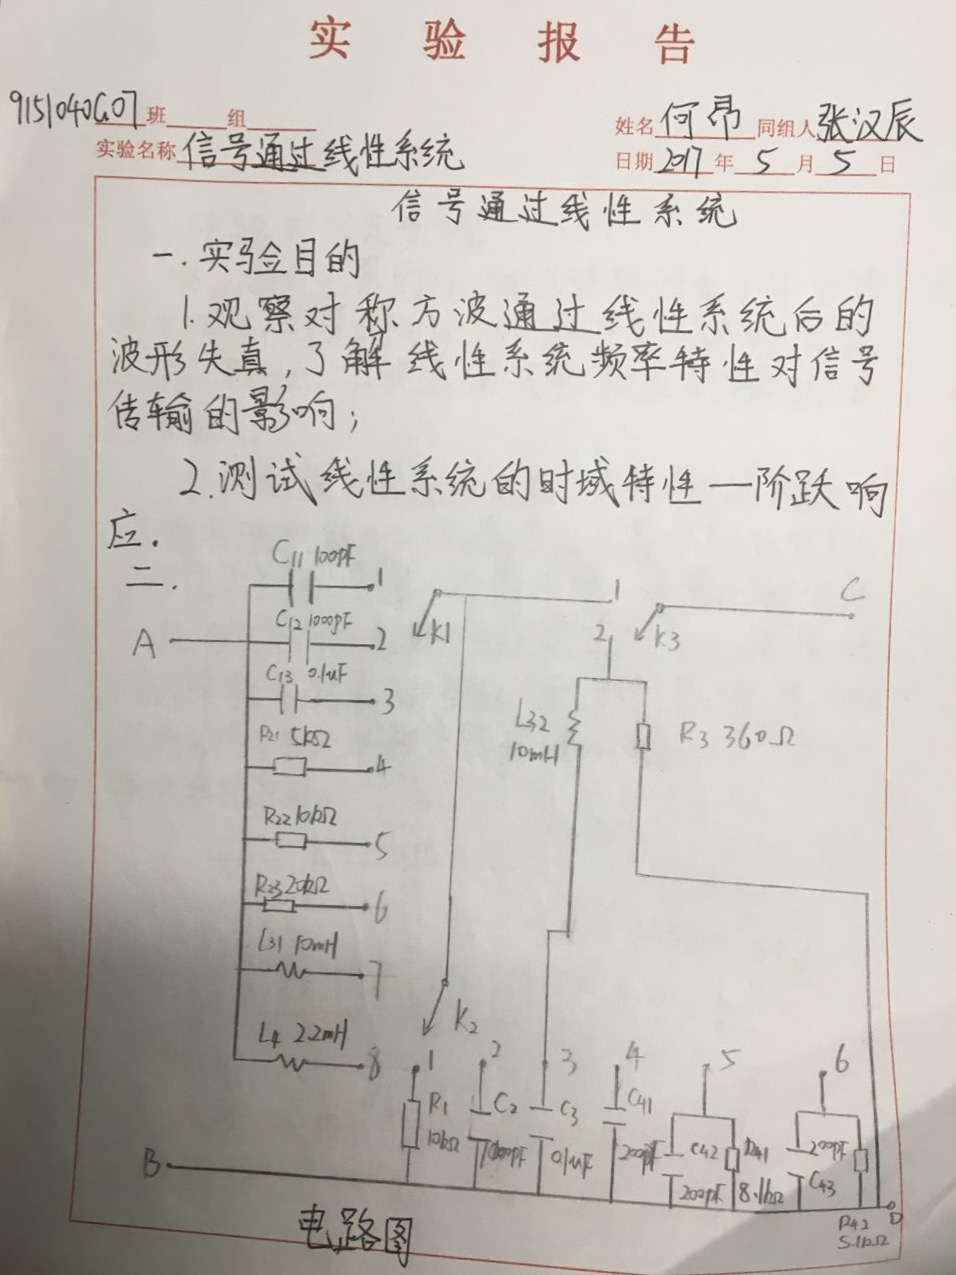 实验报告
9151040G07班 组
姓名 何昂 同组人 张汉辰
实验名称 信号通过线性系统
日期 2017 年 5 月 5 日
信号通过线性系统
一.实验目的
1.观察对称方波通过线性系统后的
波形失真,了解线性系统频率特性对信号
传输的影响;
2.测试线性系统的时域特性—阶跃响
应.
二.
C11 100pF 1
C12 1000pF 2
A
C13 0.1uF 3
R21 5kΩ 4
R22 10kΩ 5
R23 20kΩ 6
L31 10mH 7
L4 2.2mH 8
K1
1
2
K3
C
L32
10mH
R3 360Ω
K2
1 2 3 4 5 6
R1
10kΩ
C2
C3
0.1uF
C41
200pF
C42
200pF
R41
8.1kΩ
200pF
C43
R42
5.1kΩ
B
D
电路图